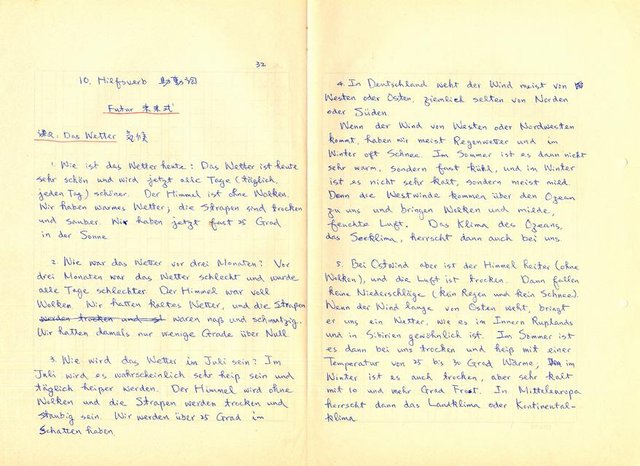 32
10. Hilfsverb 助動詞
Futur 未来式
課文: Das Wetter 気候
1. Wie ist das Wetter heute? Das Wetter ist heute
sehr schön und wird jetzt alle Tage (täglich,
jeden Tag) schöner. Der Himmel ist ohne Wolken.
Wir haben warmes Wetter, die Straßen sind trocken
und sauber. Wir haben jetzt fast 25 Grad
in der Sonne.
2. Wie war das Wetter vor drei Monaten? Vor
drei Monaten war das Wetter schlecht und wurde
alle Tage schlechter. Der Himmel war voll
Wolken. Wir hatten kaltes Wetter, und die Straßen
werden trocken und waren naß und schmutzig.
Wir hatten damals nur wenige Grade über Null.
3. Wie wird das Wetter im Juli sein? Im
Juli wird es wahrscheinlich sehr heiß sein und
täglich heißer werden. Der Himmel wird ohne
Wolken und die Straßen werden trocken und
staubig sein. Wir werden über 25 Grad im
Schatten haben
4. In Deutschland weht der Wind meist von
Westen oder Osten, ziemlich selten von Norden
oder Süden.
Wenn der Wind von Westen oder Nordwesten
kommt, haben wir meist Regenwetter und im
Winter oft Schnee. Im Sommer ist es dann nicht
sehr warm, sondern fast kühl, und im Winter
ist es nicht sehr kalt, sondern meist mild.
Denn die Westwinde kommen über den Ozean
zu uns und bringen Wolken und milde,
feuchte Luft. Das Klima des Ozeans,
das Seeklima, herrscht dann auch bei uns.
5. Bei Ostwind aber ist der Himmel heiter (ohne
Wolken), und die Luft ist trocken. Dann fallen
keine Niederschläge (kein Regen und kein Schnee).
Wenn der Wind lange von Osten weht, bringt
er uns ein Wetter, wie es im Innern Rußlands
und in Sibirien gewöhnlich ist. Im Sommer ist
es dann bei uns trocken und heiß mit einer
Temperatur von 25 bis 30 Grad Wärme, im
Winter ist es auch trocken, aber sehr kalt
mit 10 und mehr Grad Frost. In Mitteleuropa
herrscht dann das Landklima oder Kontinental-
klima